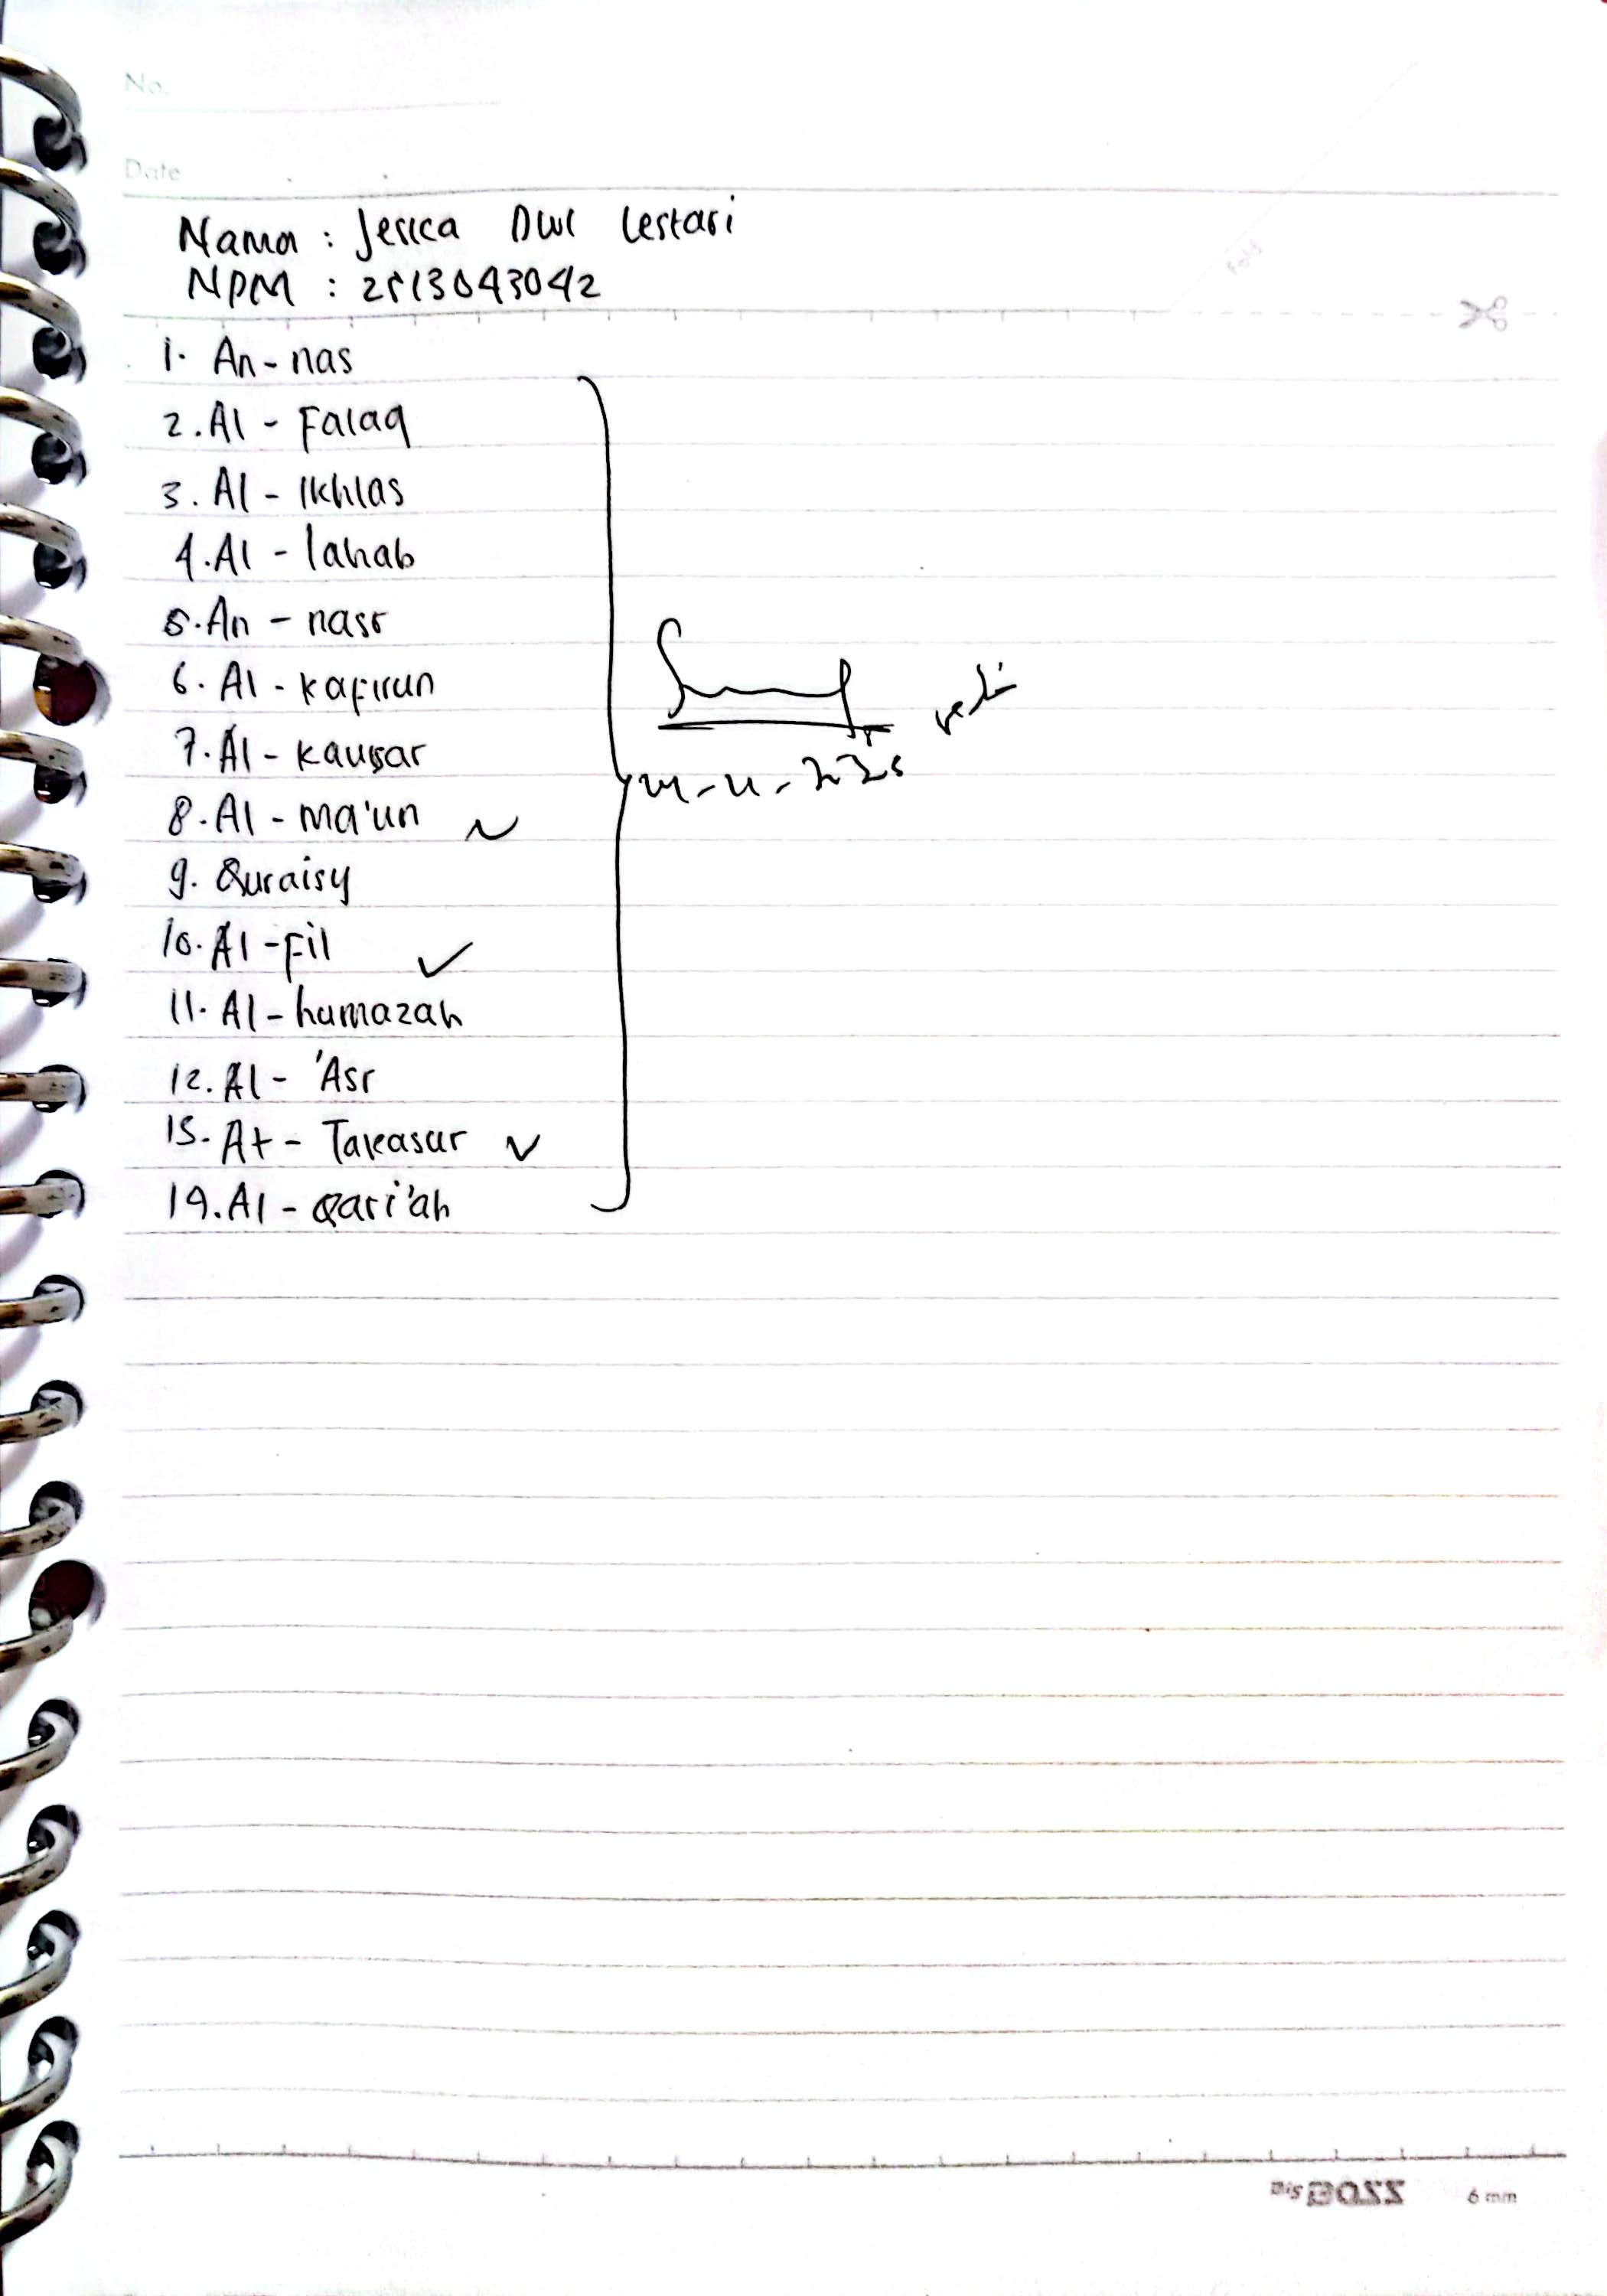 No.
Date
Nama : Jesica Dwi Lestari
NPM : 2513043042
1. An-nas
2. Al - Falaq
3. Al - Ikhlas
4. Al - lahab
5. An - nasr
6. Al - kafirun
7. Al - kausar
8. Al - ma'un
9. Quraisy
10. Al - Fil
11. Al - humazah
12. Al - 'Asr
13. At - Takasur
14. Al - Qari'ah
Fold
Big BOSS 6 mm